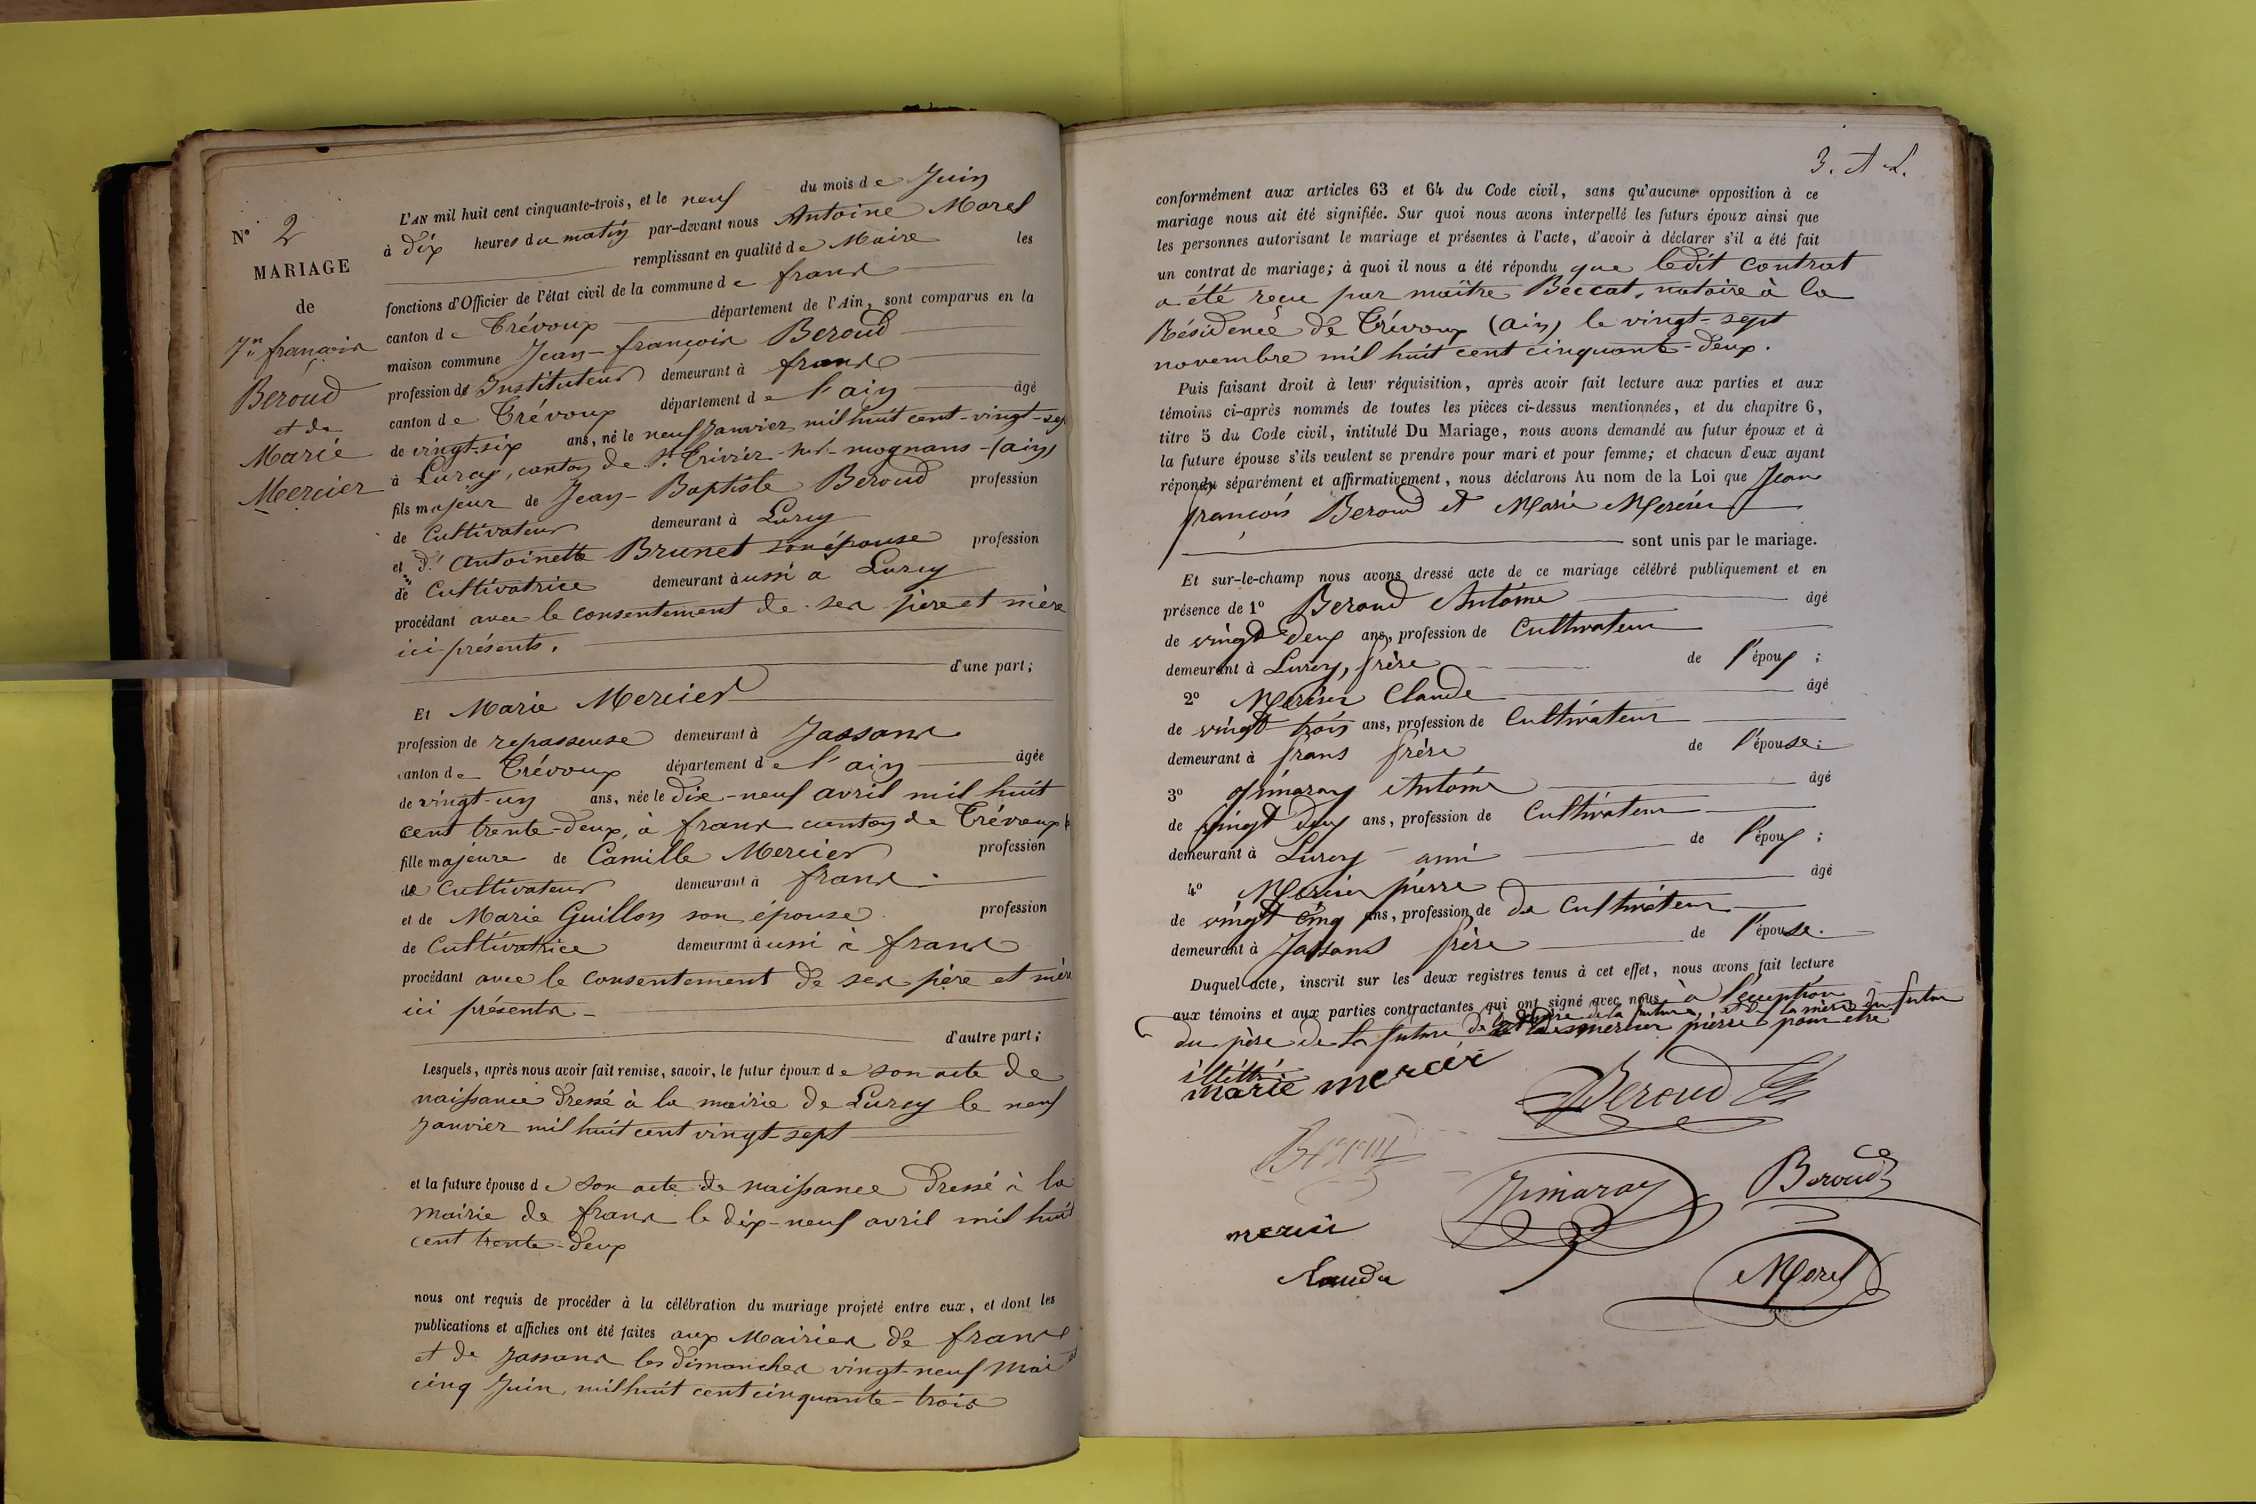 N° 2
MARIAGE
de
Jn françois
Beroud
et de
Marie
Mercier
L'AN mil huit cent cinquante-trois, et le neuf du mois de Juin
à dix heures du matin par-devant nous Antoine Morel
remplissant en qualité de Maire les
fonctions d'Officier de l'état civil de la commune de frans
canton de Trévoux département de l'Ain, sont comparus en la
maison commune Jean-françois Beroud
profession de Instituteur demeurant à frans
canton de Trévoux département de l'ain âgé
de vingt-six ans, né le neuf Janvier mil huit cent-vingt-sept
à Lurcy, canton de St Trivier-sur-mognans-(ain)
fils majeur de Jean-Baptiste Beroud profession
de Cultivateur demeurant à Lurcy
et d' Antoinette Brunet son épouse profession
de Cultivatrice demeurant aussi à Lurcy
procédant avec le consentement de ses père et mère
ici présents.
d'une part;
Et Marie Mercier
profession de repasseuse demeurant à Jassans
canton de Trévoux département de l'ain âgée
de vingt-un ans, née le dix-neuf avril mil huit
cent trente-deux, à frans canton de Trévoux
fille majeure de Camille Mercier profession
de Cultivateur demeurant à frans
et de Marie Guillon son épouse profession
de Cultivatrice demeurant aussi à frans
procédant avec le consentement de ses père et mère
ici présents
d'autre part;
Lesquels, après nous avoir fait remise, savoir, le futur époux de son acte de
naissance dressé à la mairie de Lurcy le neuf
Janvier mil huit cent vingt-sept
et la future épouse de son acte de naissance dressé à la
mairie de frans le dix-neuf avril mil huit
cent trente-deux
nous ont requis de procéder à la célébration du mariage projeté entre eux, et dont les
publications et affiches ont été faites aux Mairies de frans
et de Jassans les dimanches vingt-neuf Mai et
cinq Juin, mil huit cent cinquante-trois
3. A L.
conformément aux articles 63 et 64 du Code civil, sans qu'aucune opposition à ce
mariage nous ait été signifiée. Sur quoi nous avons interpellé les futurs époux ainsi que
les personnes autorisant le mariage et présentes à l'acte, d'avoir à déclarer s'il a été fait
un contrat de mariage; à quoi il nous a été répondu que ledit contrat
a été reçu par maître Béccat, notaire à la
Résidence de Trévoux (ain) le vingt-sept
novembre mil huit cent cinquante-deux.
Puis faisant droit à leur réquisition, après avoir fait lecture aux parties et aux
témoins ci-après nommés de toutes les pièces ci-dessus mentionnées, et du chapitre 6,
titre 5 du Code civil, intitulé Du Mariage, nous avons demandé au futur époux et à
la future épouse s'ils veulent se prendre pour mari et pour femme; et chacun d'eux ayant
répondu séparément et affirmativement, nous déclarons Au nom de la Loi que Jean
françois Beroud et Marie Mercier
sont unis par le mariage.
Et sur-le-champ nous avons dressé acte de ce mariage célébré publiquement et en
présence de 1° Beroud Antoine âgé
de vingt deux ans, profession de Cultivateur
demeurant à Lurcy, frère de l'époux;
2° Mercier Claude âgé
de vingt trois ans, profession de Cultivateur
demeurant à frans frère de l'épouse;
3° Antoine âgé
de vingt deux ans, profession de Cultivateur
demeurant à Lurcy ami de l'époux;
4° Mercier pierre âgé
de vingt cinq ans, profession de de Cultivateur
demeurant à Jassans frère de l'épouse.
Duquel acte, inscrit sur les deux registres tenus à cet effet, nous avons fait lecture
aux témoins et aux parties contractantes qui ont signé avec nous, à l'éception
de la mère de la future, et de la mère du futur
du père de la future de mercier pierre pour être
illétré
marie mercier
Beroud
Beroud
Jimaray
Beroud
mercier
Claude
Morel